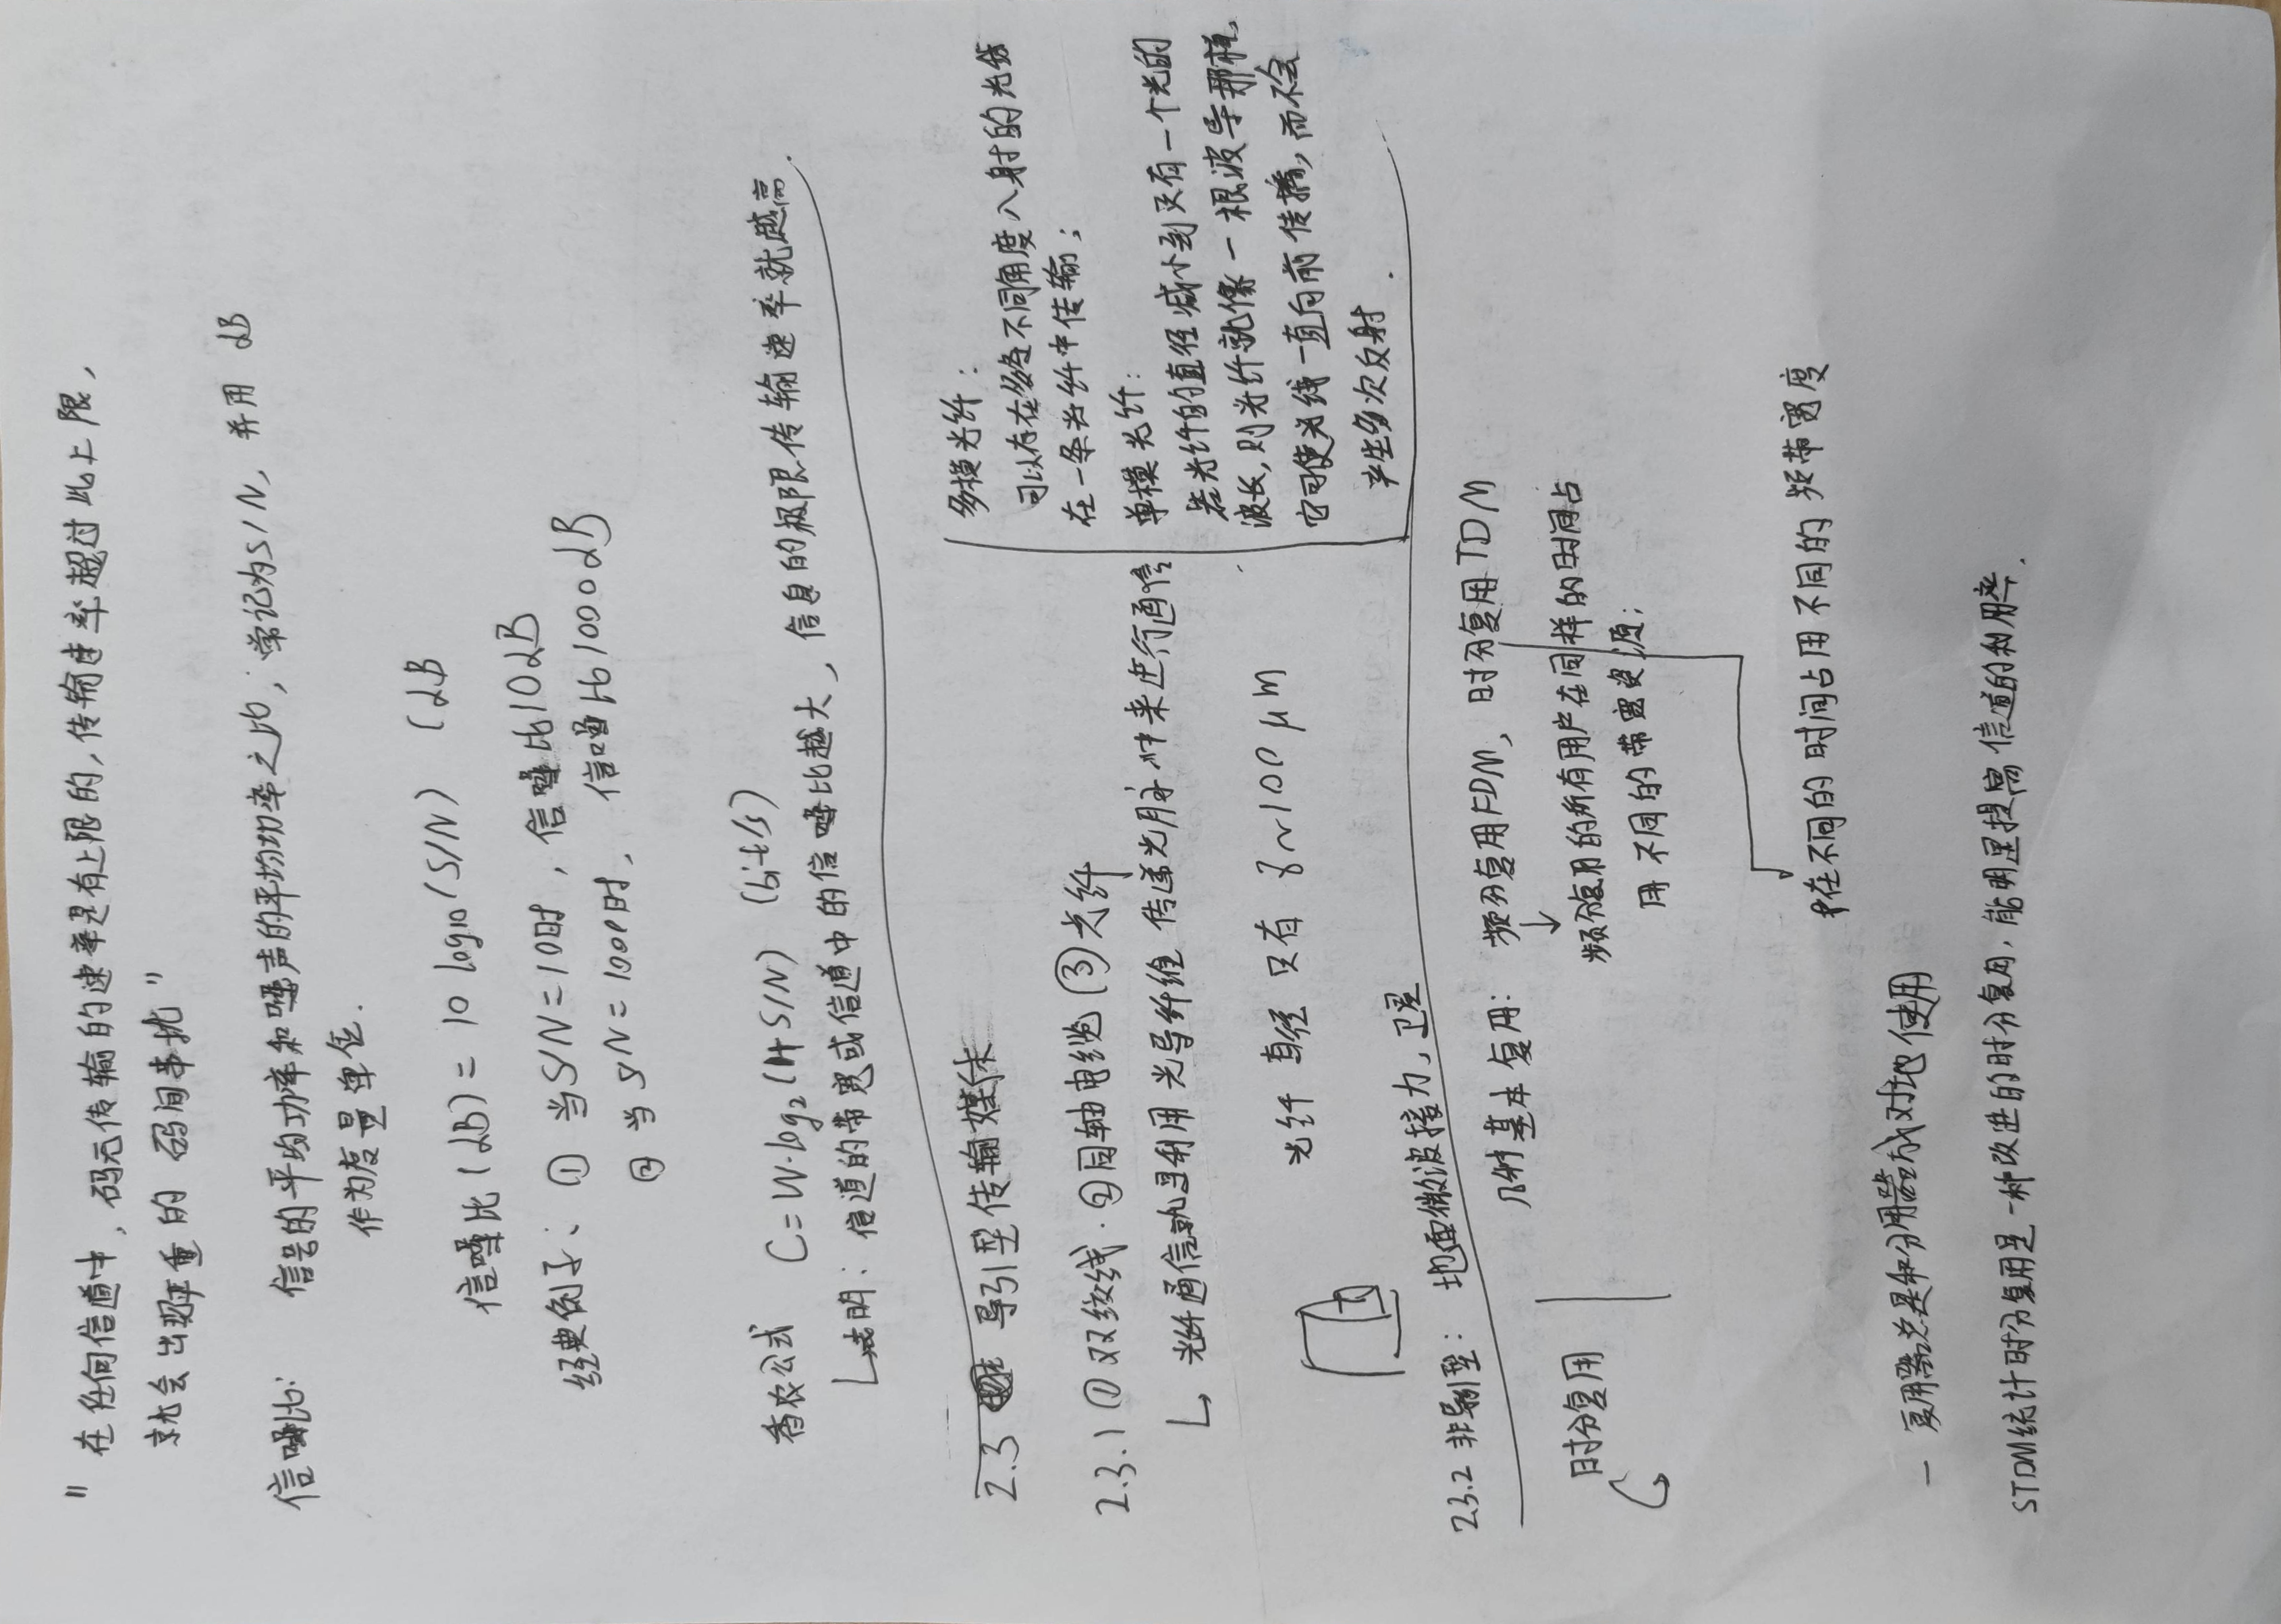 "在任何信道中，码元传输的速率是有上限的，传输速率超过此上限，
就会出现严重的 码间串扰"
信噪比： 信号的平均功率和噪声的平均功率之比，常记为S/N，并用 dB
作为度量单位.
信噪比(dB) = 10 log10(S/N) (dB
经典例子： ① 当S/N=10时，信噪比10dB
② 当S/N=1000时， 信噪比1000dB
香农公式 C=W·log₂(1+S/N) (bit/s)
表明：信道的带宽或信道中的信噪比越大，信息的极限传输速率就越高.
2.3 导引型传输媒体
2.3.1 ①双绞线.②同轴电缆 ③光纤
光纤通信就是利用 光导纤维 传递光脉冲来进行通信
光纤 直径 只有 8~100μm
多模光纤：
可以存在多条不同角度入射的光线
在一条光纤中传输；
单模光纤：
若光纤的直径减小到只有一个光的
波长，则光纤就像一根波导那样，
它可使光线一直向前传播，而不会
产生多次反射.
2.3.2 非导引型： 地面微波接力，卫星
几种基本复用： 频分复用FDM， 时分复用TDM
频分复用的所有用户在同样的时间占
用 不同的带宽资源；
时分复用
在不同的时间占用不同的 频带宽度
— 复用器总是和分用器成对地使用
STDM统计时分复用是一种改进的时分复用，能明显提高信道的利用率.